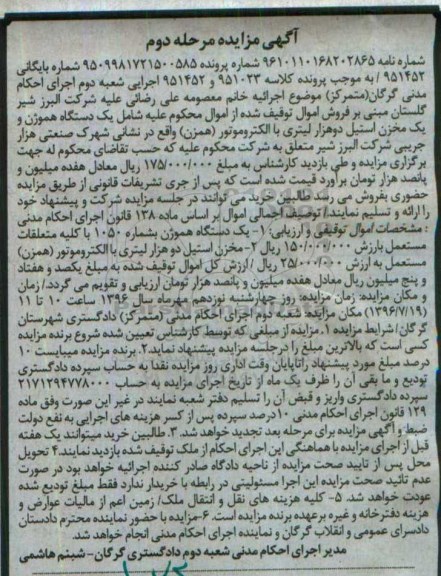 آگهی مزایده مرحله دوم
شماره نامه ۹۶۱۰۱۱۰۱۶۸۲۰۲۸۶۵ شماره پرونده ۹۵۰۹۹۸۱۷۲۱۵۰۰۵۸۵ شماره بایگانی
۹۵۱۴۵۲ / به موجب پرونده کلاسه ۹۵۱۰۲۳ و ۹۵۱۴۵۲ اجرایی شعبه دوم اجرای احکام
مدنی گرگان(متمرکز) موضوع اجرائیه خانم معصومه علی رضائی علیه شرکت البرز شیر
گلستان مبنی بر فروش اموال توقیف شده از اموال محکوم علیه شامل یک دستگاه هموژن و
یک مخزن استیل دوهزار لیتری با الکتروموتور (همزن) واقع در نشانی شهرک صنعتی هزار
جریبی شرکت البرز شیر متعلق به شرکت محکوم علیه که حسب تقاضای محکوم له جهت
برگزاری مزایده و طی بازدید کارشناس به مبلغ ۱۷۵/۰۰۰/۰۰۰ ریال معادل هفده میلیون و
پانصد هزار تومان برآورد قیمت شده است که پس از جری تشریفات قانونی از طریق مزایده
حضوری بفروش می رسد طالبین خرید می توانند در جلسه مزایده شرکت و پیشنهاد خود
را ارائه و تسلیم نمایند./ توصیف اجمالی اموال بر اساس ماده ۱۳۸ قانون اجرای احکام مدنی
: مشخصات اموال توقیفی و ارزیابی: ۱- یک دستگاه هموژن بشماره ۱۰۵۰ با کلیه متعلقات
مستعمل بارزش ۱۵۰/۰۰۰/۰۰۰ ریال ۲- مخزن استیل دو هزار لیتری با الکتروموتور (همزن)
مستعمل به ارزش ۲۵/۰۰۰/۰۰۰ ریال / ارزش کل اموال توقیف شده به مبلغ یکصد و هفتاد
و پنج میلیون ریال معادل هفده میلیون و پانصد هزار تومان ارزیابی و تقویم می گردد./ زمان
و مکان مزایده: زمان مزایده: روز چهارشنبه نوزدهم مهرماه سال ۱۳۹۶ ساعت ۱۰ تا ۱۱
(۱۳۹۶/۷/۱۹) مکان مزایده: شعبه دوم اجرای احکام مدنی (متمرکز) دادگستری شهرستان
گرگان/ شرایط مزایده ۱. مزایده از مبلغی که توسط کارشناس تعیین شده شروع برنده مزایده
کسی است که بالاترین مبلغ را درجلسه مزایده پیشنهاد نماید۲. برنده مزایده میبایست ۱۰
درصد مبلغ مورد پیشنهاد راتاپایان وقت اداری روز مزایده نقدا به حساب سپرده دادگستری
تودیع و ما بقی آن را ظرف یک ماه از تاریخ اجرای مزایده به حساب ۲۱۷۱۲۹۴۷۷۸۰۰۰
سپرده دادگستری واریز و قبض آن را تسلیم دفتر شعبه نمایند در غیر این صورت وفق ماده
۱۲۹ قانون اجرای احکام مدنی ۱۰درصد سپرده پس از کسر هزینه های اجرایی به نفع دولت
ضبط و آگهی مزایده برای مرحله بعد تجدید خواهد شد. ۳. طالبین خرید میتوانند یک هفته
قبل از اجرای مزایده با هماهنگی این اجرای احکام از ملک توقیف شده بازدید نمایند.۴ تحویل
محل پس از تایید صحت مزایده از ناحیه دادگاه صادر کننده اجرائیه خواهد بود در صورت
عدم تائید صحت مزایده این اجرا مسئولیتی در رابطه با خریدار ندارد فقط مبلغ تودیع شده
عودت خواهد شد. ۵- کلیه هزینه های نقل و انتقال ملک/ زمین اعم از مالیات عوارض و
هزینه دفترخانه و غیره برعهده برنده مزایده است. ۶-مزایده با حضور نماینده محترم دادستان
دادسرای عمومی و انقلاب گرگان و نماینده اجرای احکام مدنی انجام خواهد شد.
مدیر اجرای احکام مدنی شعبه دوم دادگستری گرگان-شبنم هاشمی